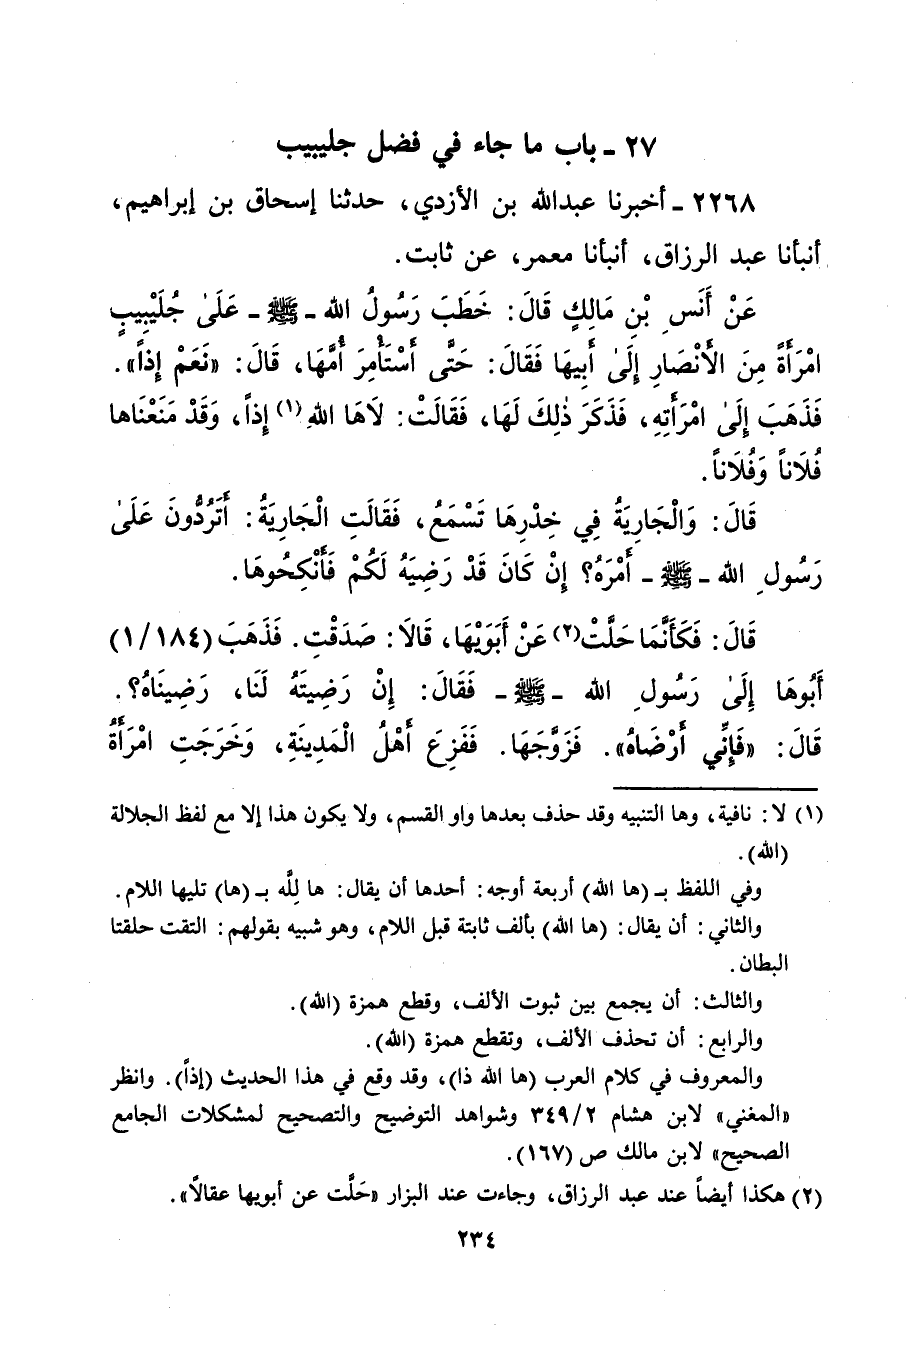 ٢٧ ـ باب ما جاء في فضل جليبيب
٢٢٦٨ ـ أخبرنا عبدالله بن الأزدي، حدثنا إسحاق بن إبراهيم،
أنبأنا عبد الرزاق، أنبأنا معمر، عن ثابت.
عَنْ أَنَسِ بْنِ مَالِكٍ قَالَ: خَطَبَ رَسُولُ الله ـ ﷺ ـ عَلَىٰ جُلَيْبِيبٍ
امْرَأَةً مِنَ الْأَنْصَارِ إِلَىٰ أَبِيهَا فَقَالَ: حَتَّى أَسْتَأْمِرَ أُمَّهَا، قَالَ: «نَعَمْ إِذاً».
فَذَهَبَ إِلَىٰ امْرَأَتِهِ، فَذَكَرَ ذٰلِكَ لَهَا، فَقَالَتْ: لَاهَا اللهِ(١) إِذاً، وَقَدْ مَنَعْنَاها
فُلَاناً وَفُلَاناً.
قَالَ: وَالْجَارِيَةُ فِي خِدْرِهَا تَسْمَعُ، فَقَالَتِ الْجَارِيَةُ: أَتَرُدُّونَ عَلَىٰ
رَسُولِ الله ـ ﷺ ـ أَمْرَهُ؟ إِنْ كَانَ قَدْ رَضِيَهُ لَكُمْ فَأَنْكِحُوهَا.
قَالَ: فَكَأَنَّمَا حَلَّتْ(٢) عَنْ أَبَوَيْهَا، قَالَا: صَدَقْتِ. فَذَهَبَ (١/١٨٤)
أَبُوهَا إِلَىٰ رَسُولِ الله ـ ﷺ ـ فَقَالَ: إِنْ رَضِيتَهُ لَنَا، رَضِينَاهُ؟.
قَالَ: «فَإِنِّي أَرْضَاهُ». فَزَوَّجَهَا. فَفَزِعَ أَهْلُ الْمَدِينَةِ، وَخَرَجَتِ امْرَأَةُ
(١) لا: نافية، وها التنبيه وقد حذف بعدها واو القسم، ولا يكون هذا إلا مع لفظ الجلالة
(الله).
وفي اللفظ بـ (ها الله) أربعة أوجه: أحدها أن يقال: ها لِلَّه بـ (ها) تليها اللام.
والثاني: أن يقال: (ها الله) بألف ثابتة قبل اللام، وهو شبيه بقولهم: التقت حلقتا
البطان.
والثالث: أن يجمع بين ثبوت الألف، وقطع همزة (الله).
والرابع: أن تحذف الألف، وتقطع همزة (الله).
والمعروف في كلام العرب (ها الله ذا)، وقد وقع في هذا الحديث (إذاً). وانظر
«المغني» لابن هشام ٣٤٩/٢ وشواهد التوضيح والتصحيح لمشكلات الجامع
الصحيح» لابن مالك ص (١٦٧).
(٢) هكذا أيضاً عند عبد الرزاق، وجاءت عند البزار «حَلَّت عن أبويها عقالاً».
٢٣٤